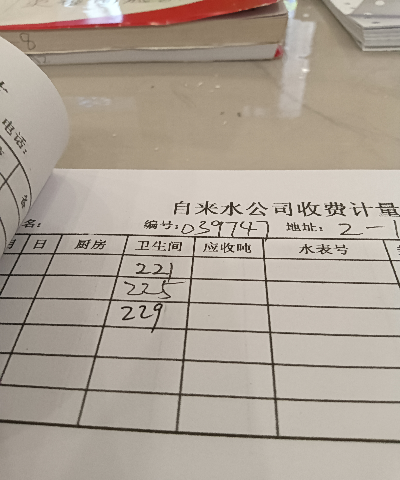 8
电话:
自来水公司收费计量
名: 编号: 039747 地址: 2-1
月 日 厨房 卫生间 应收吨 水表号
221
225
229